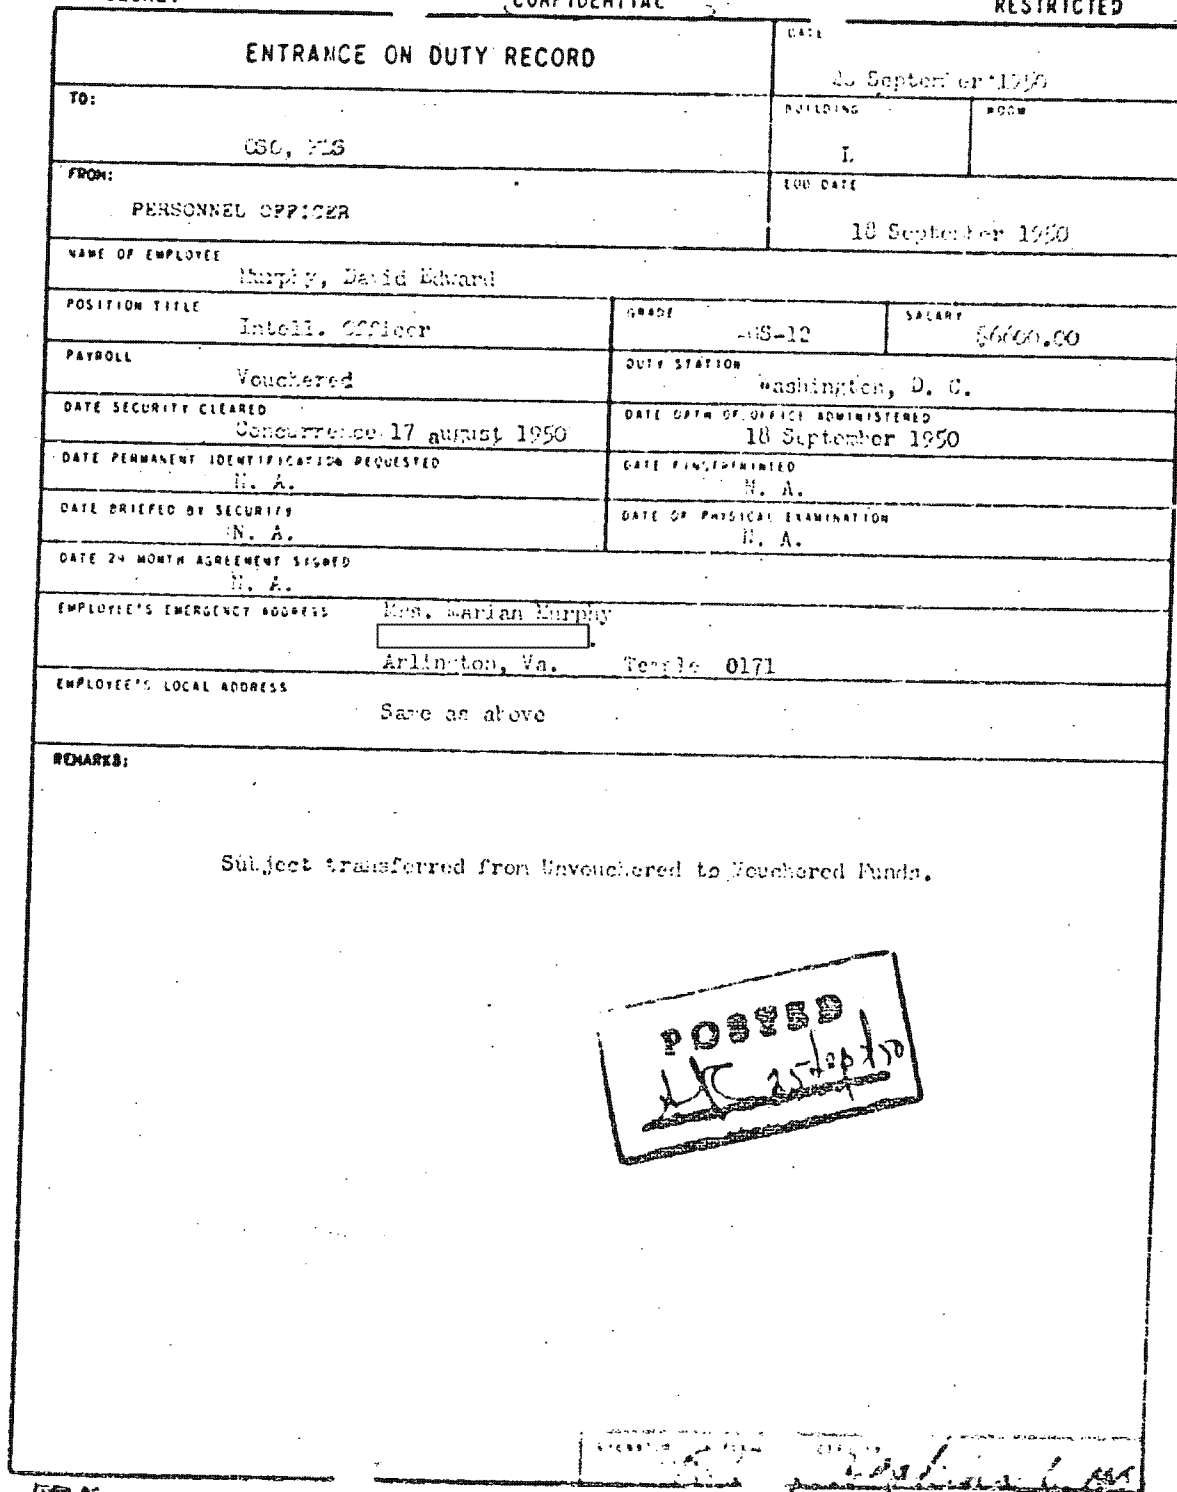 CONFIDENTIAL RESTRICTED
ENTRANCE ON DUTY RECORD
DATE
September 1950
TO:
OSO,
BUILDING
L
ROOM
FROM:
PERSONNEL OFFICER
EOD DATE
18 September 1950
NAME OF EMPLOYEE
Murphy, David Edward
POSITION TITLE
Intell. Officer
GRADE
GS-12
SALARY
$6600.00
PAYROLL
Vouchered
DUTY STATION
Washington, D. C.
DATE SECURITY CLEARED
Concurrence 17 august 1950
DATE OATH OF OFFICE ADMINISTERED
18 September 1950
DATE PERMANENT IDENTIFICATION REQUESTED
N. A.
DATE FINGERPRINTED
N. A.
DATE BRIEFED BY SECURITY
N. A.
DATE OF PHYSICAL EXAMINATION
N. A.
DATE 24 MONTH AGREEMENT SIGNED
N. A.
EMPLOYEE'S EMERGENCY ADDRESS
Mrs. Marian Murphy
Arlington, Va. Temple 0171
EMPLOYEE'S LOCAL ADDRESS
Same as above
REMARKS:
Subject transferred from Unvouchered to Vouchered Funds.
POSTED
25 Sept 50